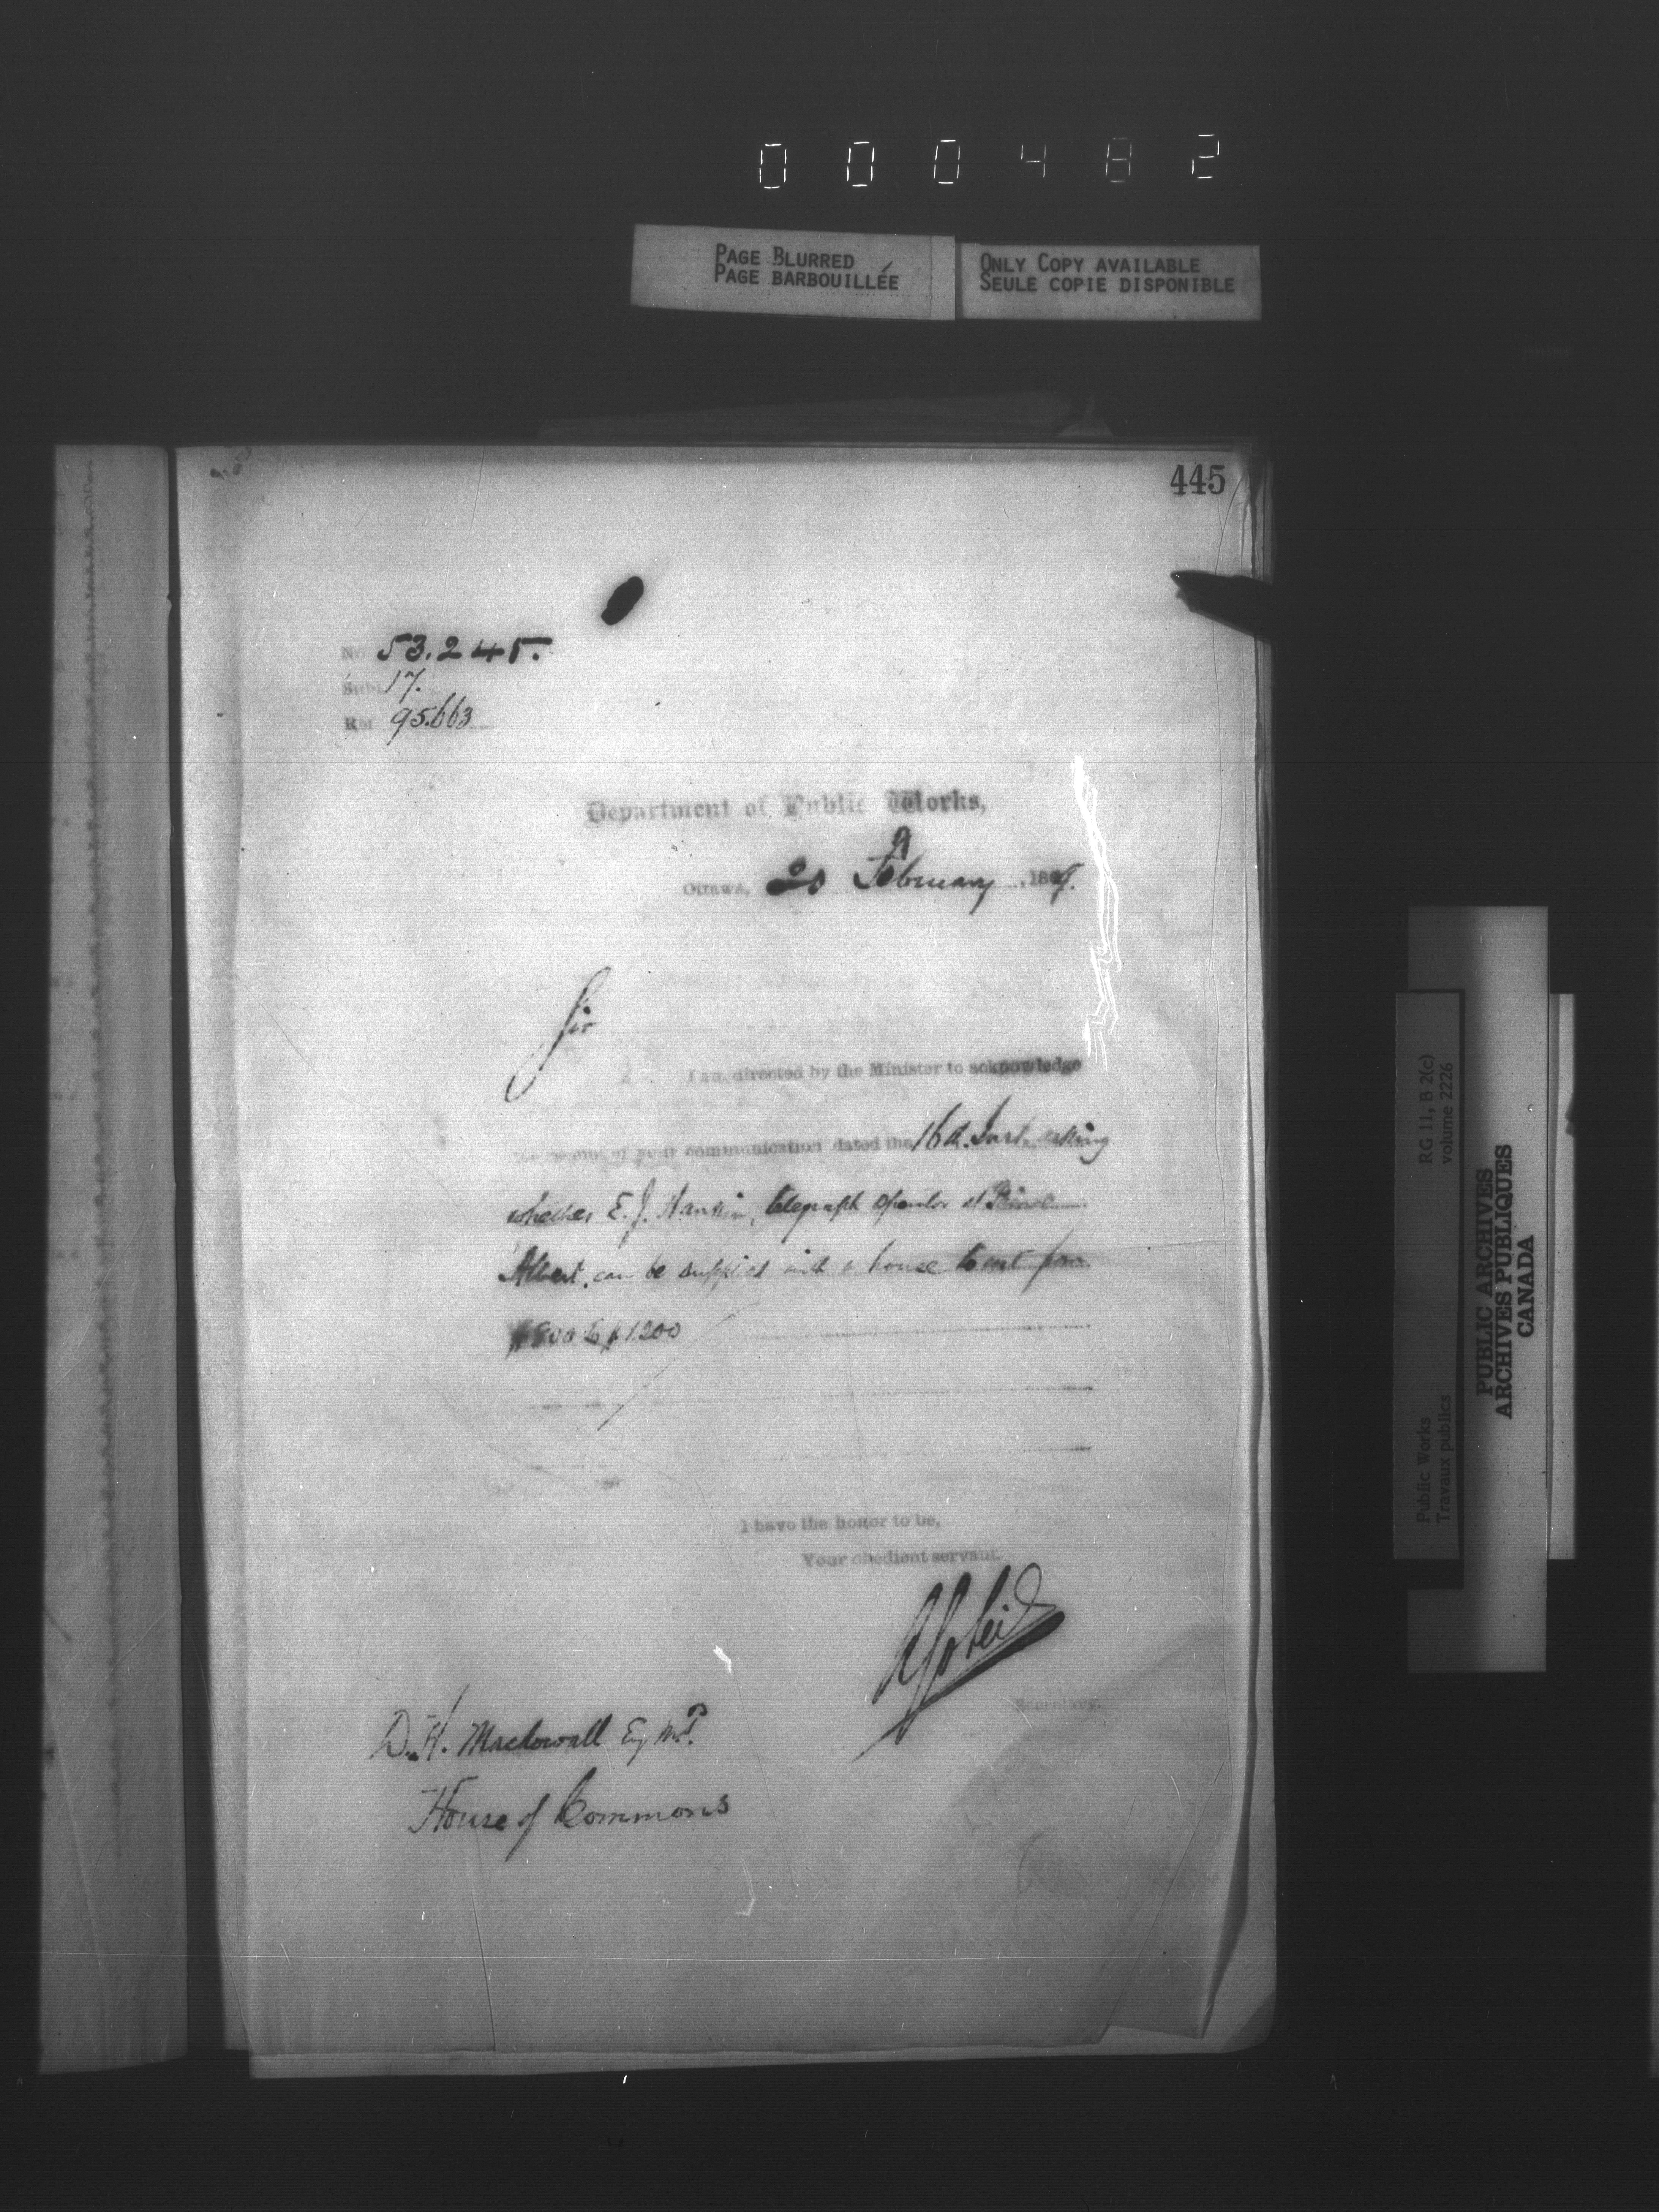 000482
PAGE BLURRED
PAGE BARBOUILLÉE
ONLY COPY AVAILABLE
SEULE COPIE DISPONIBLE
445
No 53.245.
Subj. 17.
Ref 95.663
Department of Public Works,
Ottawa, 20 February, 188
Sir
I am directed by the Minister to acknowledge
the receipt of your communication dated the 16th. Inst. asking
whether E. J. telegraph operator at Prince
Albert, can be supplied with a house to cost from
$800 to $1200
I have the honor to be,
Your obedient servant.
Secretary.
D. H. Macdowall Esq M.P.
House of Commons
Public Works
Travaux publics
RG 11, B 2(c)
volume 2226
PUBLIC ARCHIVES
ARCHIVES PUBLIQUES
CANADA